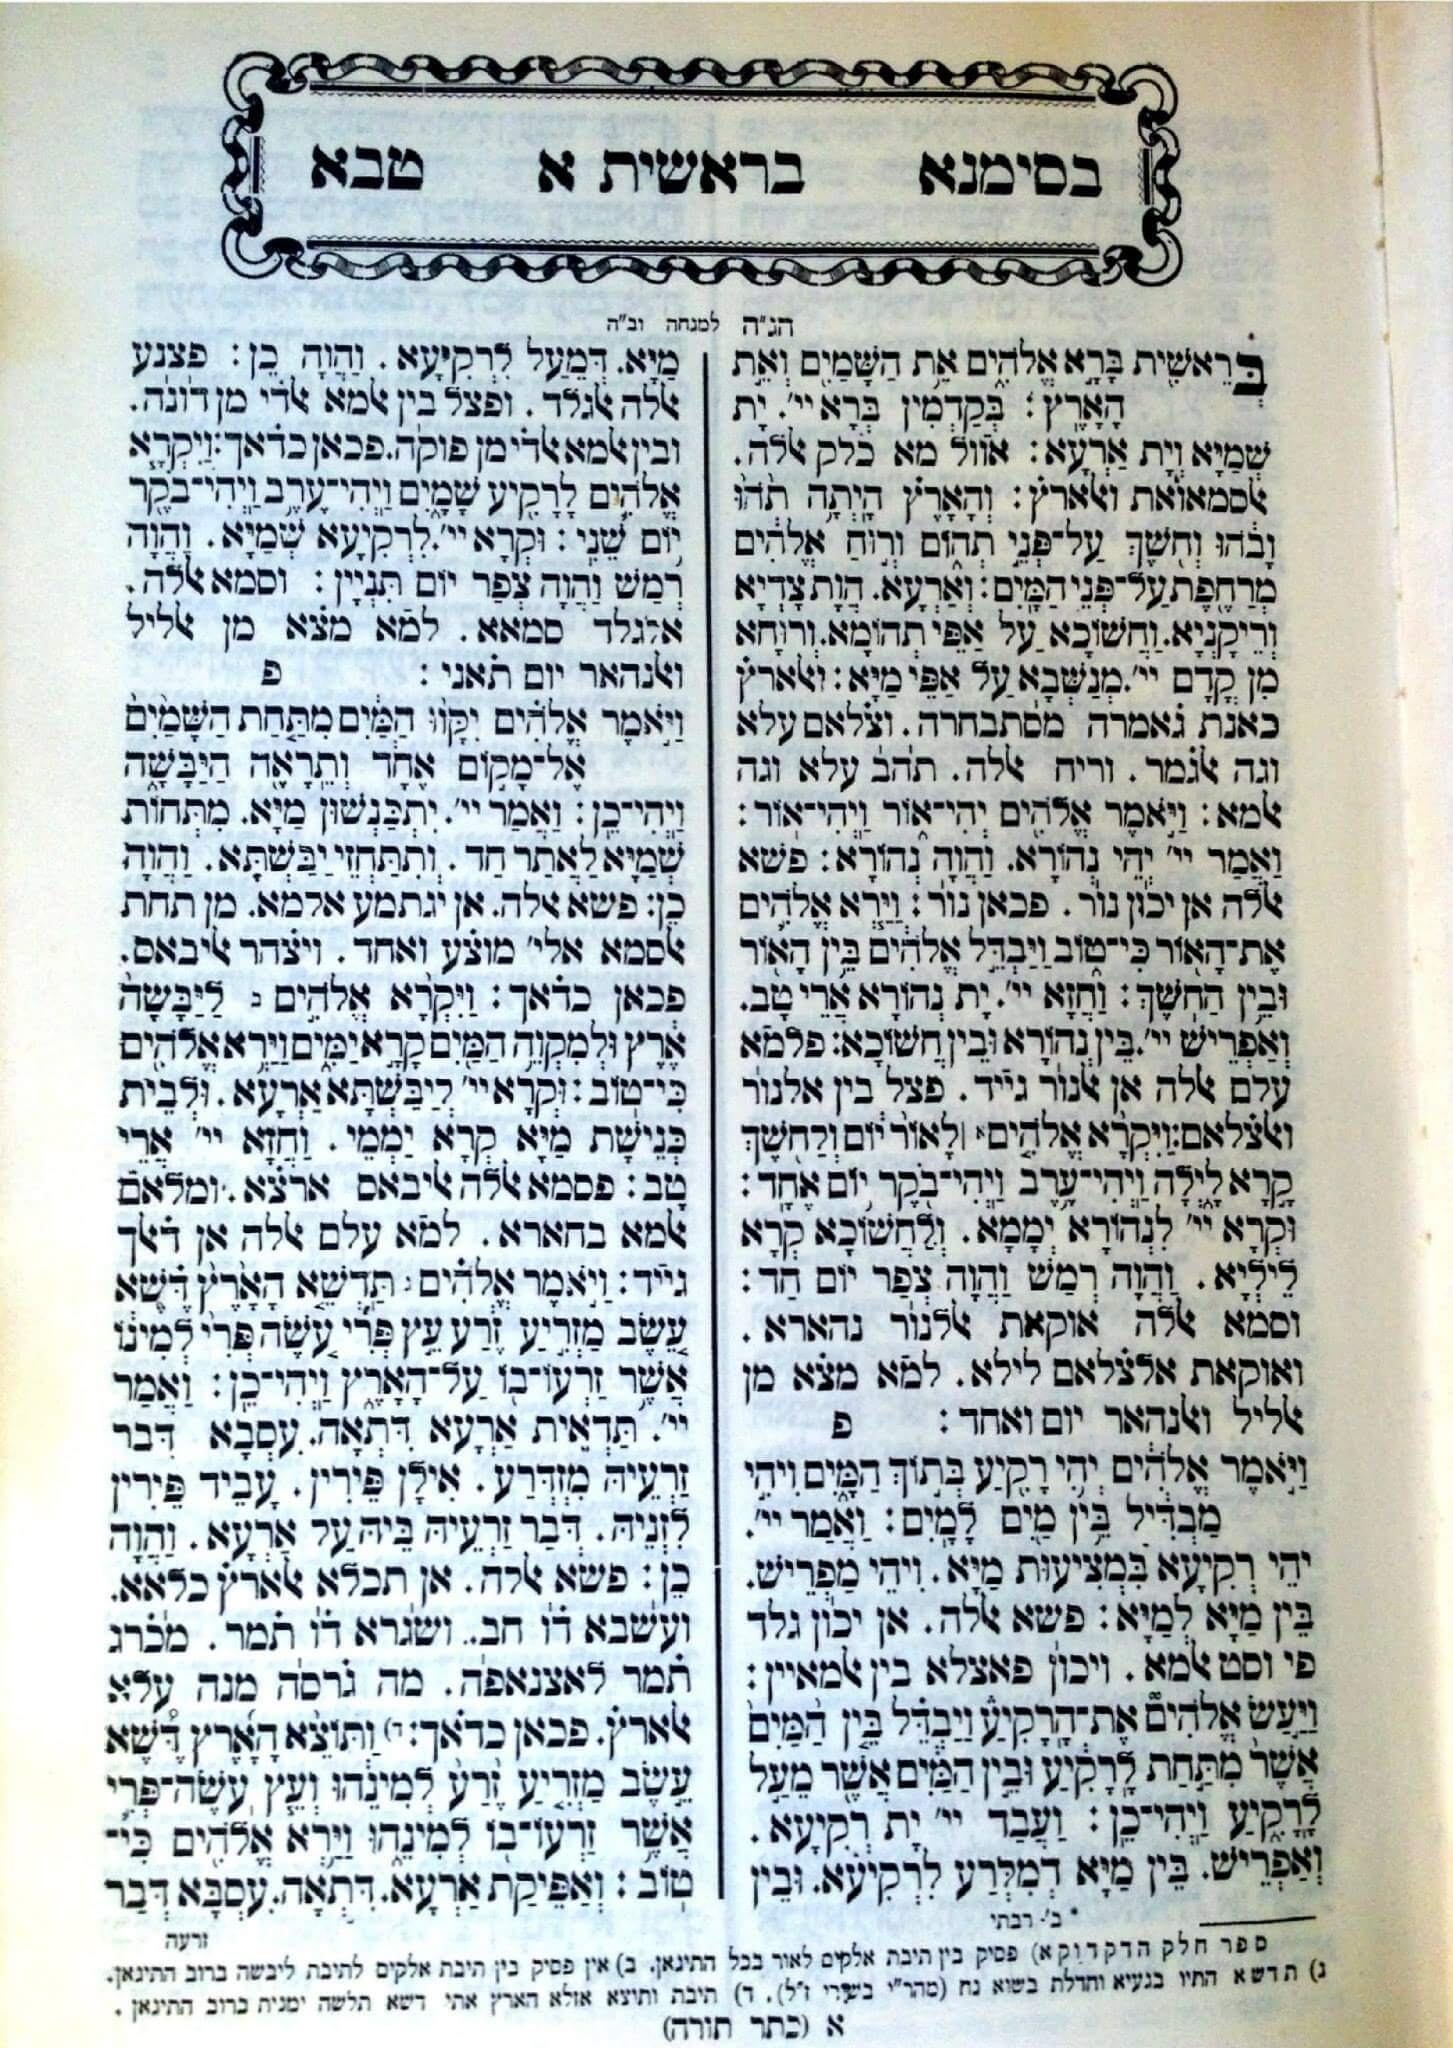 בסימנא בראשית א טבא
הג״ה למנחה וב״ה
בְּרֵאשִׁית בָּרָא אֱלֹהִים אֵת הַשָּׁמַיִם וְאֵת
הָאָרֶץ׃ בְּקַדְמִין בְּרָא יי׳. יָת
שְׁמַיָּא וְיָת אַרְעָא׃ אוול מא כלק אללה.
אלסמאואת ואלארץ׃ וְהָאָרֶץ הָיְתָה תֹהוּ
וָבֹהוּ וְחֹשֶׁךְ עַל־פְּנֵי תְהוֹם וְרוּחַ אֱלֹהִים
מְרַחֶפֶת עַל־פְּנֵי הַמָּיִם׃ וְאַרְעָא. הֲוָת צָדְיָא
וְרֵיקָנְיָא. וַחֲשׁוֹכָא עַל אַפֵּי תְהוֹמָא. וְרוּחָא
מִן קֳדָם יי׳. מְנַשְּׁבָא עַל אַפֵּי מַיָּא׃ ואלארץ
כאנת גאמרה מסתבחרה. וצלאם עלא
וגה אלגמר. וריח אללה. תהב עלא וגה
אלמא׃ וַיֹּאמֶר אֱלֹהִים יְהִי־אוֹר וַיְהִי־אוֹר׃
וַאֲמַר יי׳ יְהֵי נְהוֹרָא. וַהֲוָה נְהוֹרָא׃ פשא
אללה אן יכון נור. פכאן נור׃ וַיַּרְא אֱלֹהִים
אֶת־הָאוֹר כִּי־טוֹב וַיַּבְדֵּל אֱלֹהִים בֵּין הָאוֹר
וּבֵין הַחֹשֶׁךְ׃ וַחֲזָא יי׳. יָת נְהוֹרָא אֲרֵי טָב.
וְאַפְרֵישׁ יי׳. בֵּין נְהוֹרָא וּבֵין חֲשׁוֹכָא׃ פלמא
עלם אללה אן אלנור גייד. פצל בין אלנור
ואלצלאם׃ וַיִּקְרָא אֱלֹהִיםא ׀ לָאוֹר יוֹם וְלַחֹשֶׁךְ
קָרָא לָיְלָה וַיְהִי־עֶרֶב וַיְהִי־בֹקֶר יוֹם אֶחָד׃
וּקְרָא יי׳ לִנְהוֹרָא יְמָמָא. וְלַחֲשׁוֹכָא קְרָא
לֵילְיָא. וַהֲוָה רְמַשׁ וַהֲוָה צְפַר יוֹם חַד׃
וסמא אללה אוקאת אלנור נהארא.
ואוקאת אלצלאם לילא. למא מצא מן
אליל ואלנהאר יום ואחד׃ פ
וַיֹּאמֶר אֱלֹהִים יְהִי רָקִיעַ בְּתוֹךְ הַמָּיִם וִיהִי
מַבְדִּיל בֵּין מַיִם לָמָיִם׃ וַאֲמַר יי׳.
יְהֵי רְקִיעָא בִּמְצִיעוּת מַיָּא. וִיהֵי מַפְרֵישׁ.
בֵּין מַיָּא לְמַיָּא׃ פשא אללה. אן יכון גלד
פי וסט אלמא. ויכון פאצלא בין אלמאיין׃
וַיַּעַשׂ אֱלֹהִים אֶת־הָרָקִיעַ וַיַּבְדֵּל בֵּין הַמַּיִם
אֲשֶׁר מִתַּחַת לָרָקִיעַ וּבֵין הַמַּיִם אֲשֶׁר מֵעַל
לָרָקִיעַ וַיְהִי־כֵן׃ וַעֲבַד יי׳ יָת רְקִיעָא.
וְאַפְרֵישׁ. בֵּין מַיָּא דְמִלְּרַע לִרְקִיעָא. וּבֵין
מַיָּא. דְּמֵעַל לִרְקִיעָא. וַהֲוָה כֵן׃ פצנע
אללה אלגלד. ופצל בין אלמא אלדי מן דונה.
ובין אלמא אלדי מן פוקה. פכאן כדאך׃ וַיִּקְרָא
אֱלֹהִים לָרָקִיעַ שָׁמָיִם וַיְהִי־עֶרֶב וַיְהִי־בֹקֶר
יוֹם שֵׁנִי׃ וּקְרָא יי׳. לִרְקִיעָא שְׁמַיָּא. וַהֲוָה
רְמַשׁ וַהֲוָה צְפַר יוֹם תִּנְיָין׃ וסמא אללה.
אלגלד סמאא. למא מצא מן אליל
ואלנהאר יום תאני׃ פ
וַיֹּאמֶר אֱלֹהִים יִקָּווּ הַמַּיִם מִתַּחַת הַשָּׁמַיִם
אֶל־מָקוֹם אֶחָד וְתֵרָאֶה הַיַּבָּשָׁה
וַיְהִי־כֵן׃ וַאֲמַר יי׳. יִתְכַּנְשׁוּן מַיָּא. מִתְּחוֹת
שְׁמַיָּא לַאֲתַר חַד. וְתִתְחֲזֵי יַבַּשְׁתָּא. וַהֲוָה
כֵן׃ פשא אללה. אן יגתמע אלמא. מן תחת
אלסמא אלי׳ מוצע ואחד. ויצהר אליבאס.
פכאן כדאך׃ וַיִּקְרָא אֱלֹהִים ב לַיַּבָּשָׁה
אֶרֶץ וּלְמִקְוֵה הַמַּיִם קָרָא יַמִּים וַיַּרְא אֱלֹהִים
כִּי־טוֹב׃ וּקְרָא יי׳ לְיַבַּשְׁתָּא אַרְעָא. וּלְבֵית
כְּנֵישַׁת מַיָּא קְרָא יַמְמֵי. וַחֲזָא יי׳ אֲרֵי
טָב׃ פסמא אללה אליבאס ארצא. ומלאם
אלמא בחארא. למא עלם אללה אן דאלך
גייד׃ וַיֹּאמֶר אֱלֹהִים ג תַּדְשֵׁא הָאָרֶץ דֶּשֶׁא
עֵשֶׂב מַזְרִיעַ זֶרַע עֵץ פְּרִי עֹשֶׂה פְּרִי לְמִינוֹ
אֲשֶׁר זַרְעוֹ־בוֹ עַל־הָאָרֶץ וַיְהִי־כֵן׃ וַאֲמַר
יי׳. תַּדְאֵית אַרְעָא דִּתְאָה. עִסְבָּא דְּבַר
זַרְעֵיהּ מִזְדְּרַע. אִילָן פֵּירִין. עָבֵיד פֵּירִין
לִזְנֵיהּ. דְּבַר זַרְעֵיהּ בֵּיהּ עַל אַרְעָא. וַהֲוָה
כֵן׃ פשא אללה. אן תכלא אלארץ כלאא.
ועשבא דו חב. ושגרא דו תמר. מכרג
תמר לאצנאפה. מה גרסה מנה עלא
אלארץ. פכאן כדאך׃ ד) וַתּוֹצֵא הָאָרֶץ דֶּשֶׁא
עֵשֶׂב מַזְרִיעַ זֶרַע לְמִינֵהוּ וְעֵץ עֹשֶׂה־פְּרִי
אֲשֶׁר זַרְעוֹ־בוֹ לְמִינֵהוּ וַיַּרְא אֱלֹהִים כִּי־
טוֹב׃ וְאַפֵּיקַת אַרְעָא. דִּתְאָה. עִסְבָּא דְּבַר
זרעה
* ב׳ רבתי
ספר חלק הדקדוק א) פסיק בין תיבת אלקים לאור בכל התיגאן. ב) אין פסיק בין תיבת אלקים לתיבת ליבשה ברוב התיגאן.
ג) תדשא התיו בגעיא והדלת בשוא נח (מהר״י בשירי ז״ל). ד) תיבת ותוצא אזלא הארץ אתי דשא תלשה ימנית ברוב התיגאן.
א (כתר תורה)